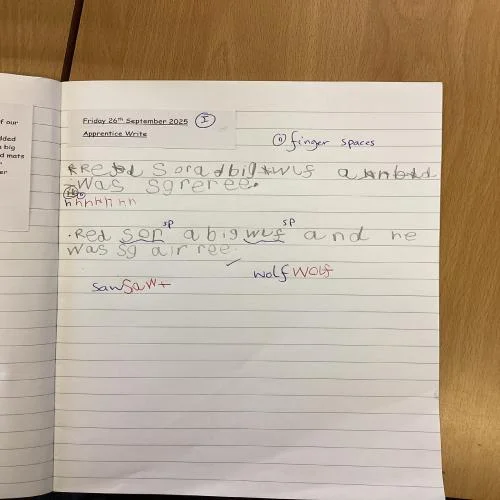 f our
dded
big
d mats
er
Friday 26th September 2025 I
Apprentice Write
① finger spaces
Was sgreree.
h h h h h h h
sp sp
Red son a big wuf and he
was sg air ree.
wolf wolf
saw saw